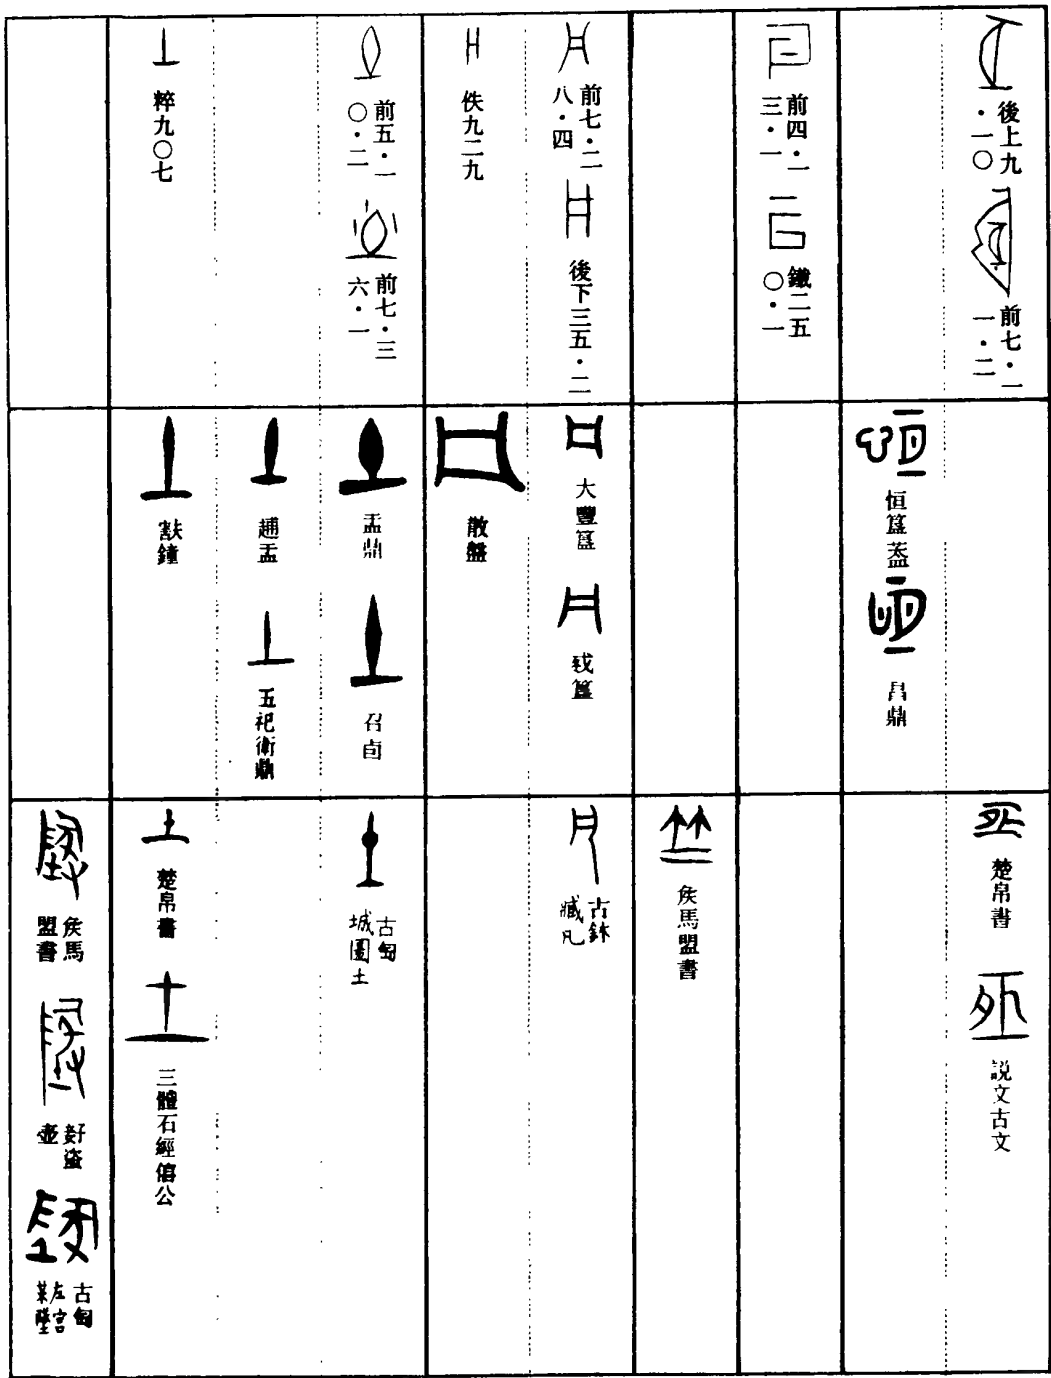 後上九
・一〇
前七・一
一・二
前四・一
三・一
鐵二五
〇・一
前七・二
八・四
後下三五・二
佚九二九
前五・一
〇・二
前七・三
六・一
粹九〇七
恒簋蓋
曶鼎
大豐簋
簋
散盤
盂鼎
召卣
盂
五祀衛鼎
㝬鐘
楚帛書
説文古文
侯馬盟書
古鉥
臧凡
古匋
城圜土
楚帛書
三體石經僖公
侯馬
盟書
盗
壺
古匋
左宮